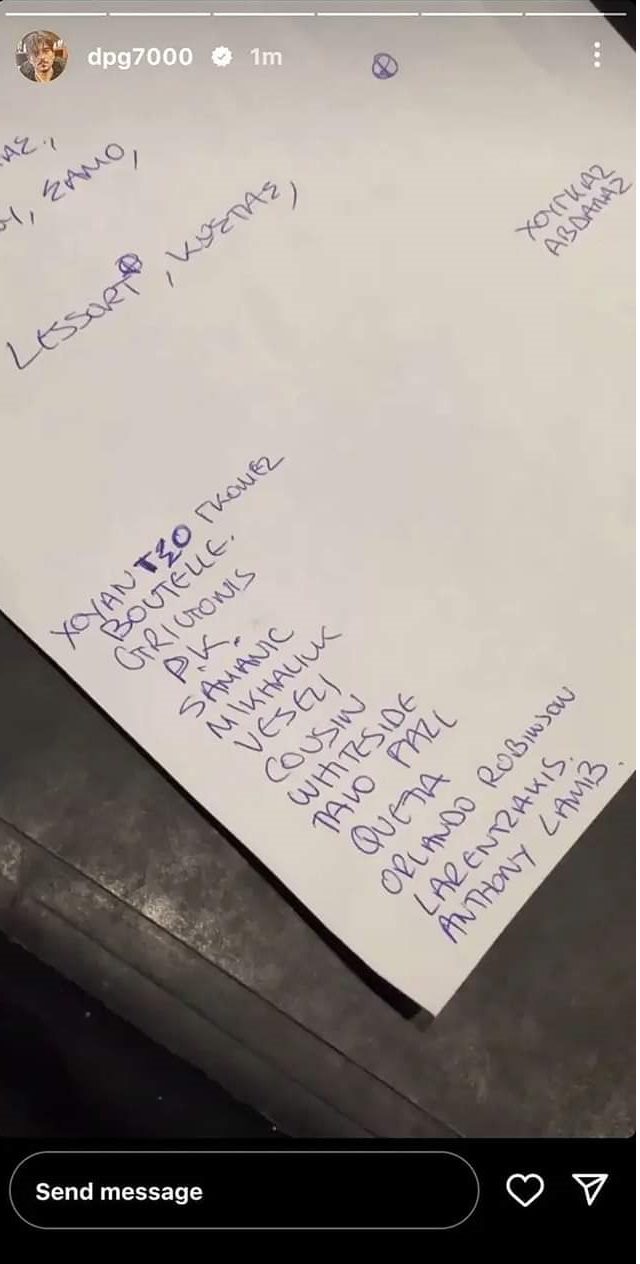 dpg7000 1m
ΑΣ.,
, ΣΑΜΟ,
LESSORT, ΚΩΣΤΑΣ,
ΧΟΥΓΚΑΣ
ΑΒΔΑΛΑΣ
ΧΟΥΑΝΤΣΟ ΓΚΟΜΕΖ
BOUTELLE.
GRIGONIS
P.K.
SAMANIC
MIKHAILIUK
VESELI
COUSIN
WHITESIDE
QUETA
ORLANDO ROBINSON
LARENTZAKIS.
ANTHONY LAMB.
Send message